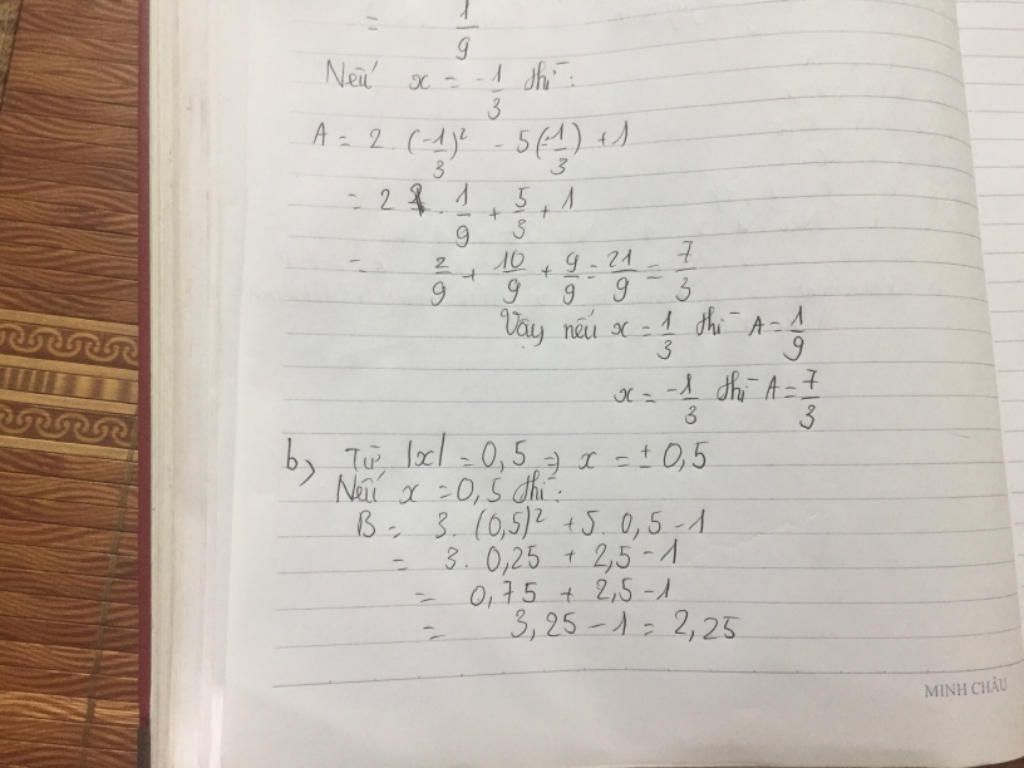 = 1/9
Nếu x = -1/3 thì:
A = 2. (-1/3)² - 5(-1/3) + 1
= 2 . 1/9 + 5/3 + 1
= 2/9 + 10/9 + 9/9 = 21/9 = 7/3
Vậy nếu x = 1/3 thì A = 1/9
x = -1/3 thì A = 7/3
b) Từ |x| = 0,5 ⇒ x = ± 0,5
Nếu x = 0,5 thì:
B = 3. (0,5)² + 5. 0,5 - 1
= 3. 0,25 + 2,5 - 1
= 0,75 + 2,5 - 1
= 3,25 - 1 = 2,25
MINH CHÂU